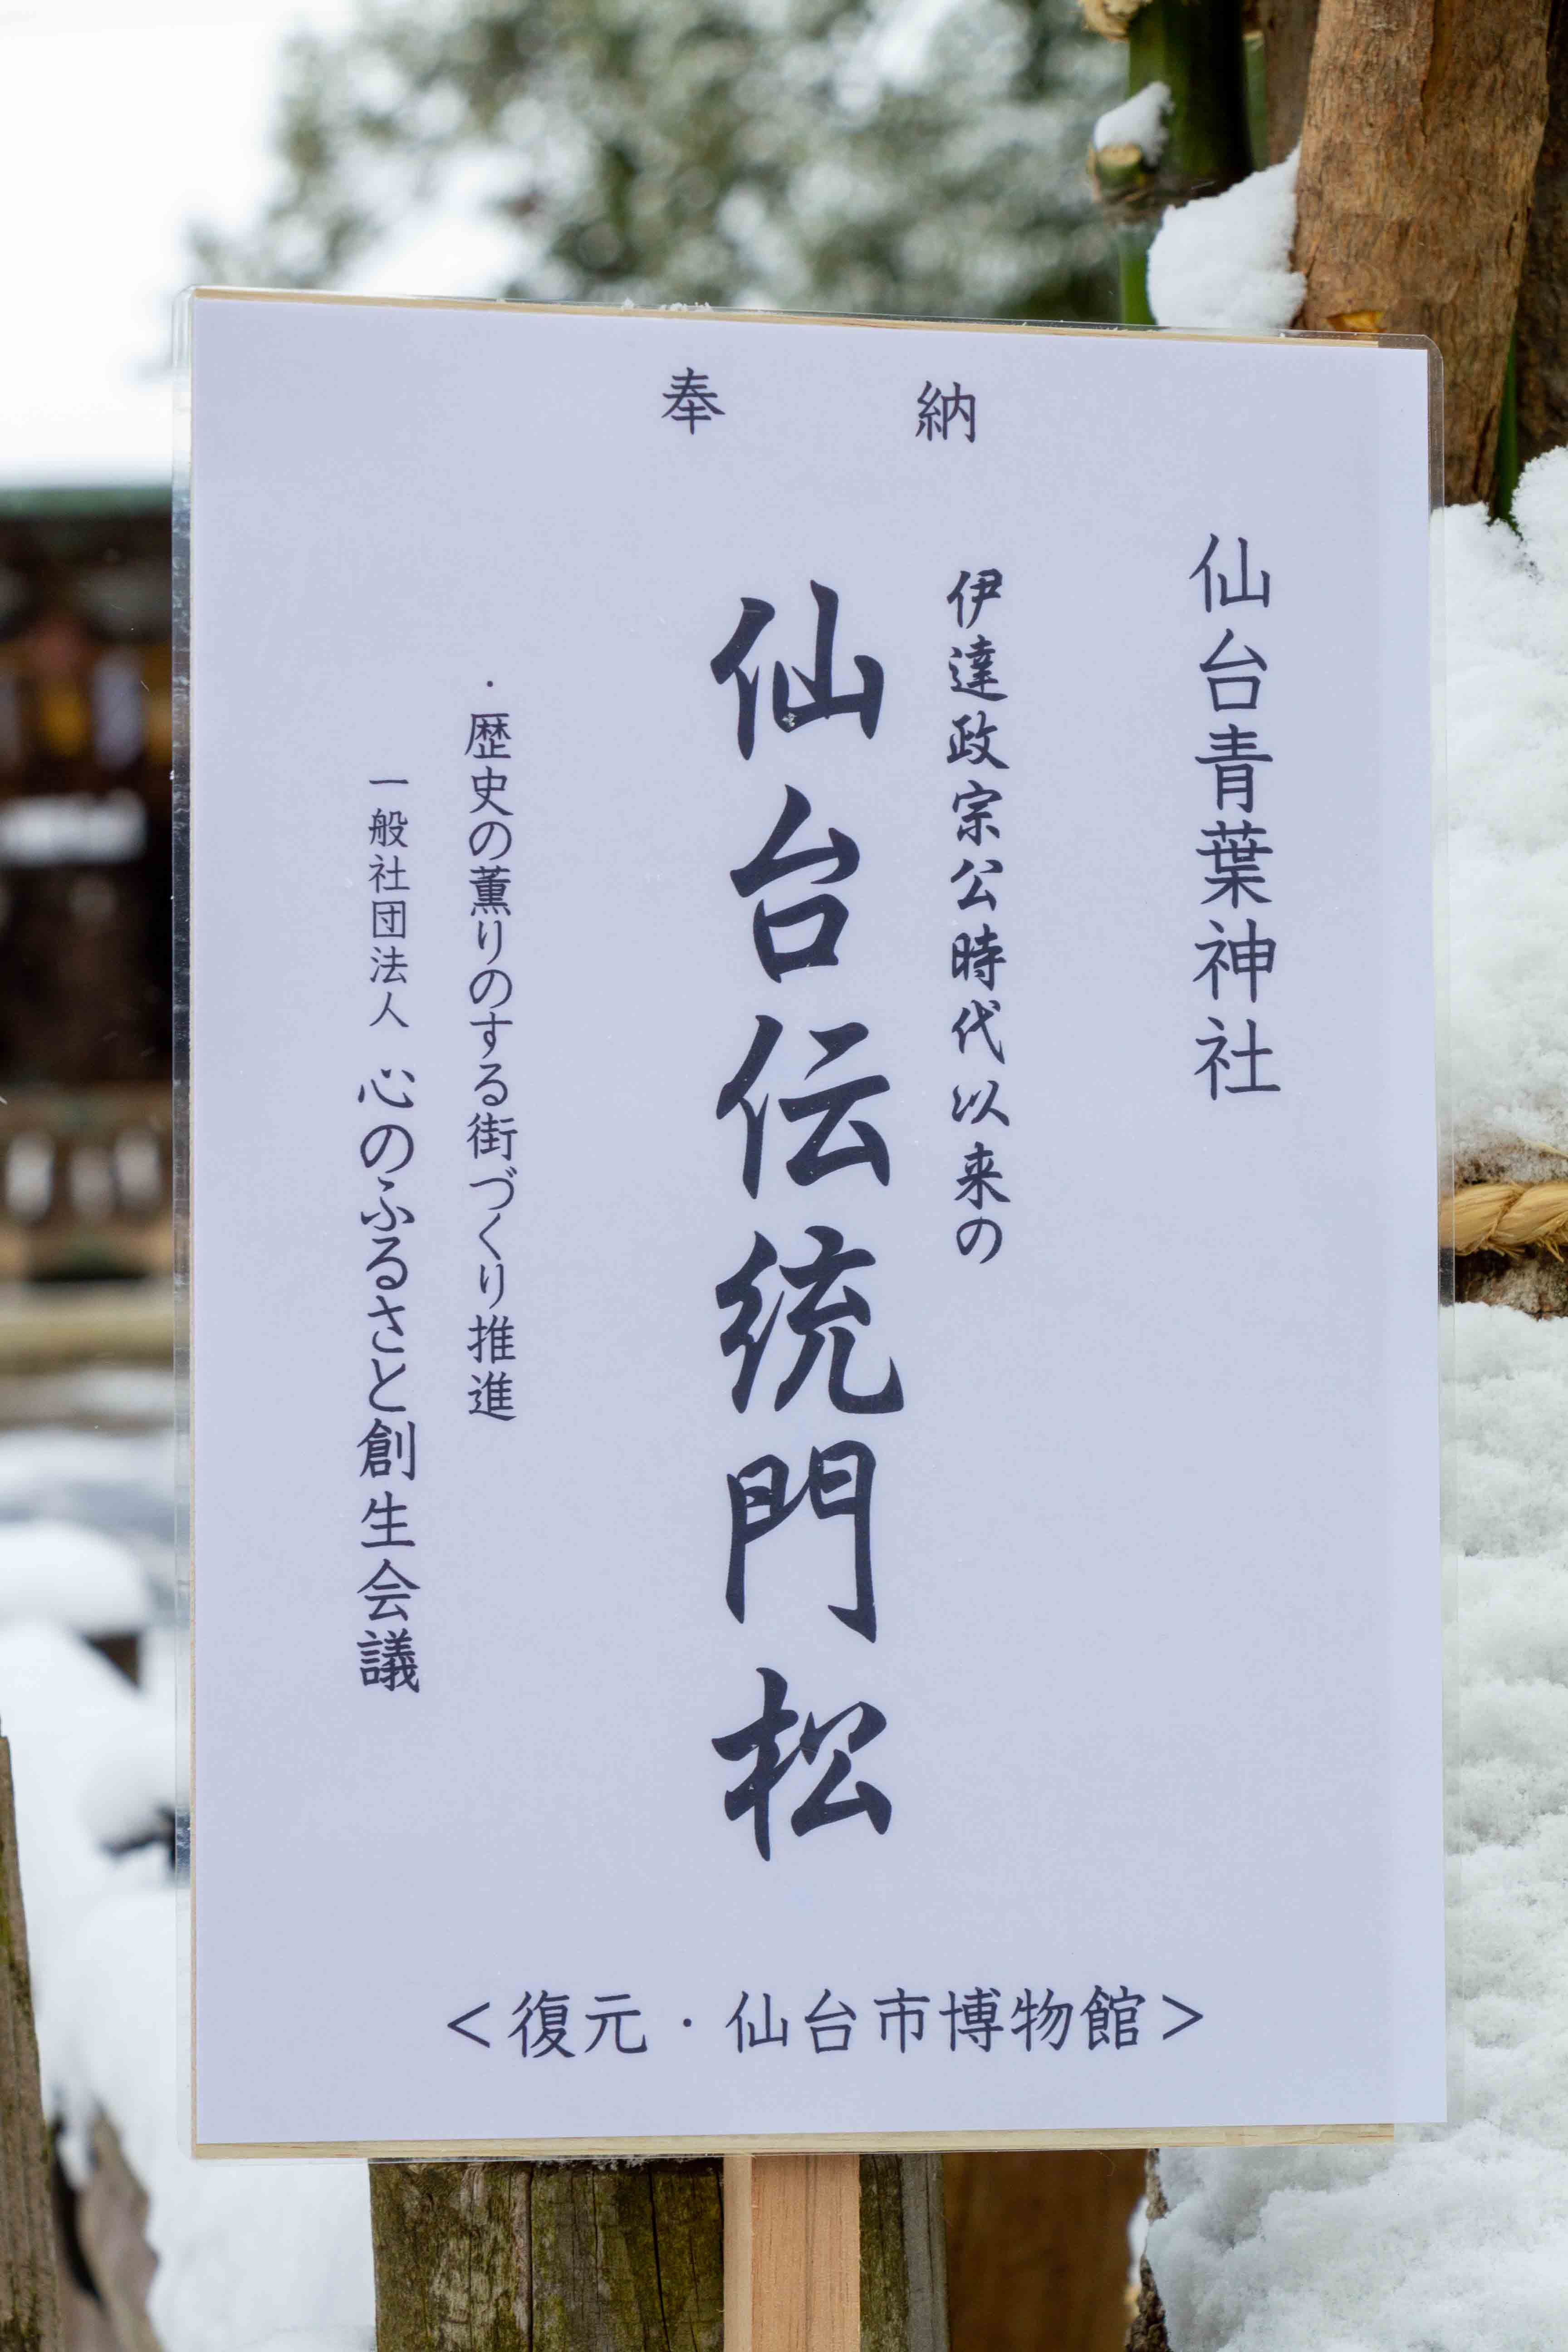 奉納
仙台青葉神社
伊達政宗公時代以来の
仙台伝統門松
・歴史の薫りのする街づくり推進
一般社団法人 心のふるさと創生会議
＜復元・仙台市博物館＞